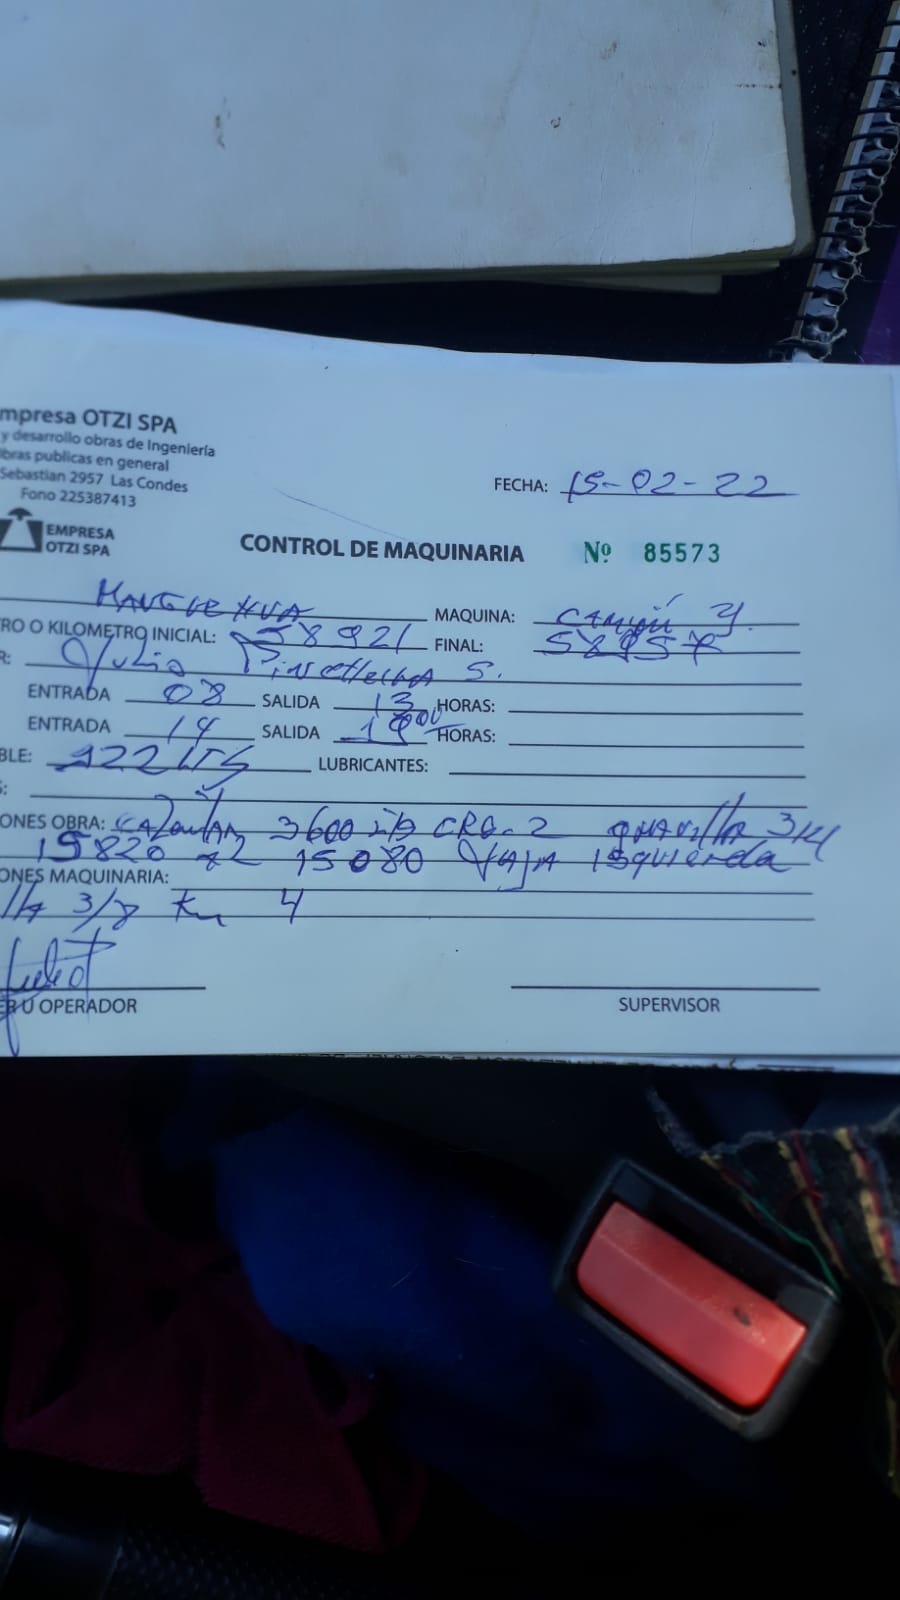 mpresa OTZI SPA
y desarrollo obras de Ingeniería
bras publicas en general
Sebastian 2957 Las Condes
Fono 225387413
FECHA: 15-02-22
EMPRESA
OTZI SPA
CONTROL DE MAQUINARIA Nº 85573
MAQUINA:
RO O KILOMETRO INICIAL: 58921 FINAL: 58957
R: Julio S.
ENTRADA 08 SALIDA 13 HORAS:
ENTRADA 14 SALIDA HORAS:
BLE: 122 LTS LUBRICANTES:
S:
ONES OBRA: 3600 CRO-2 gravilla
15820 x2 15080 Faja Isquierda
ONES MAQUINARIA:
lla 3/8 Km 4
ER U OPERADOR SUPERVISOR